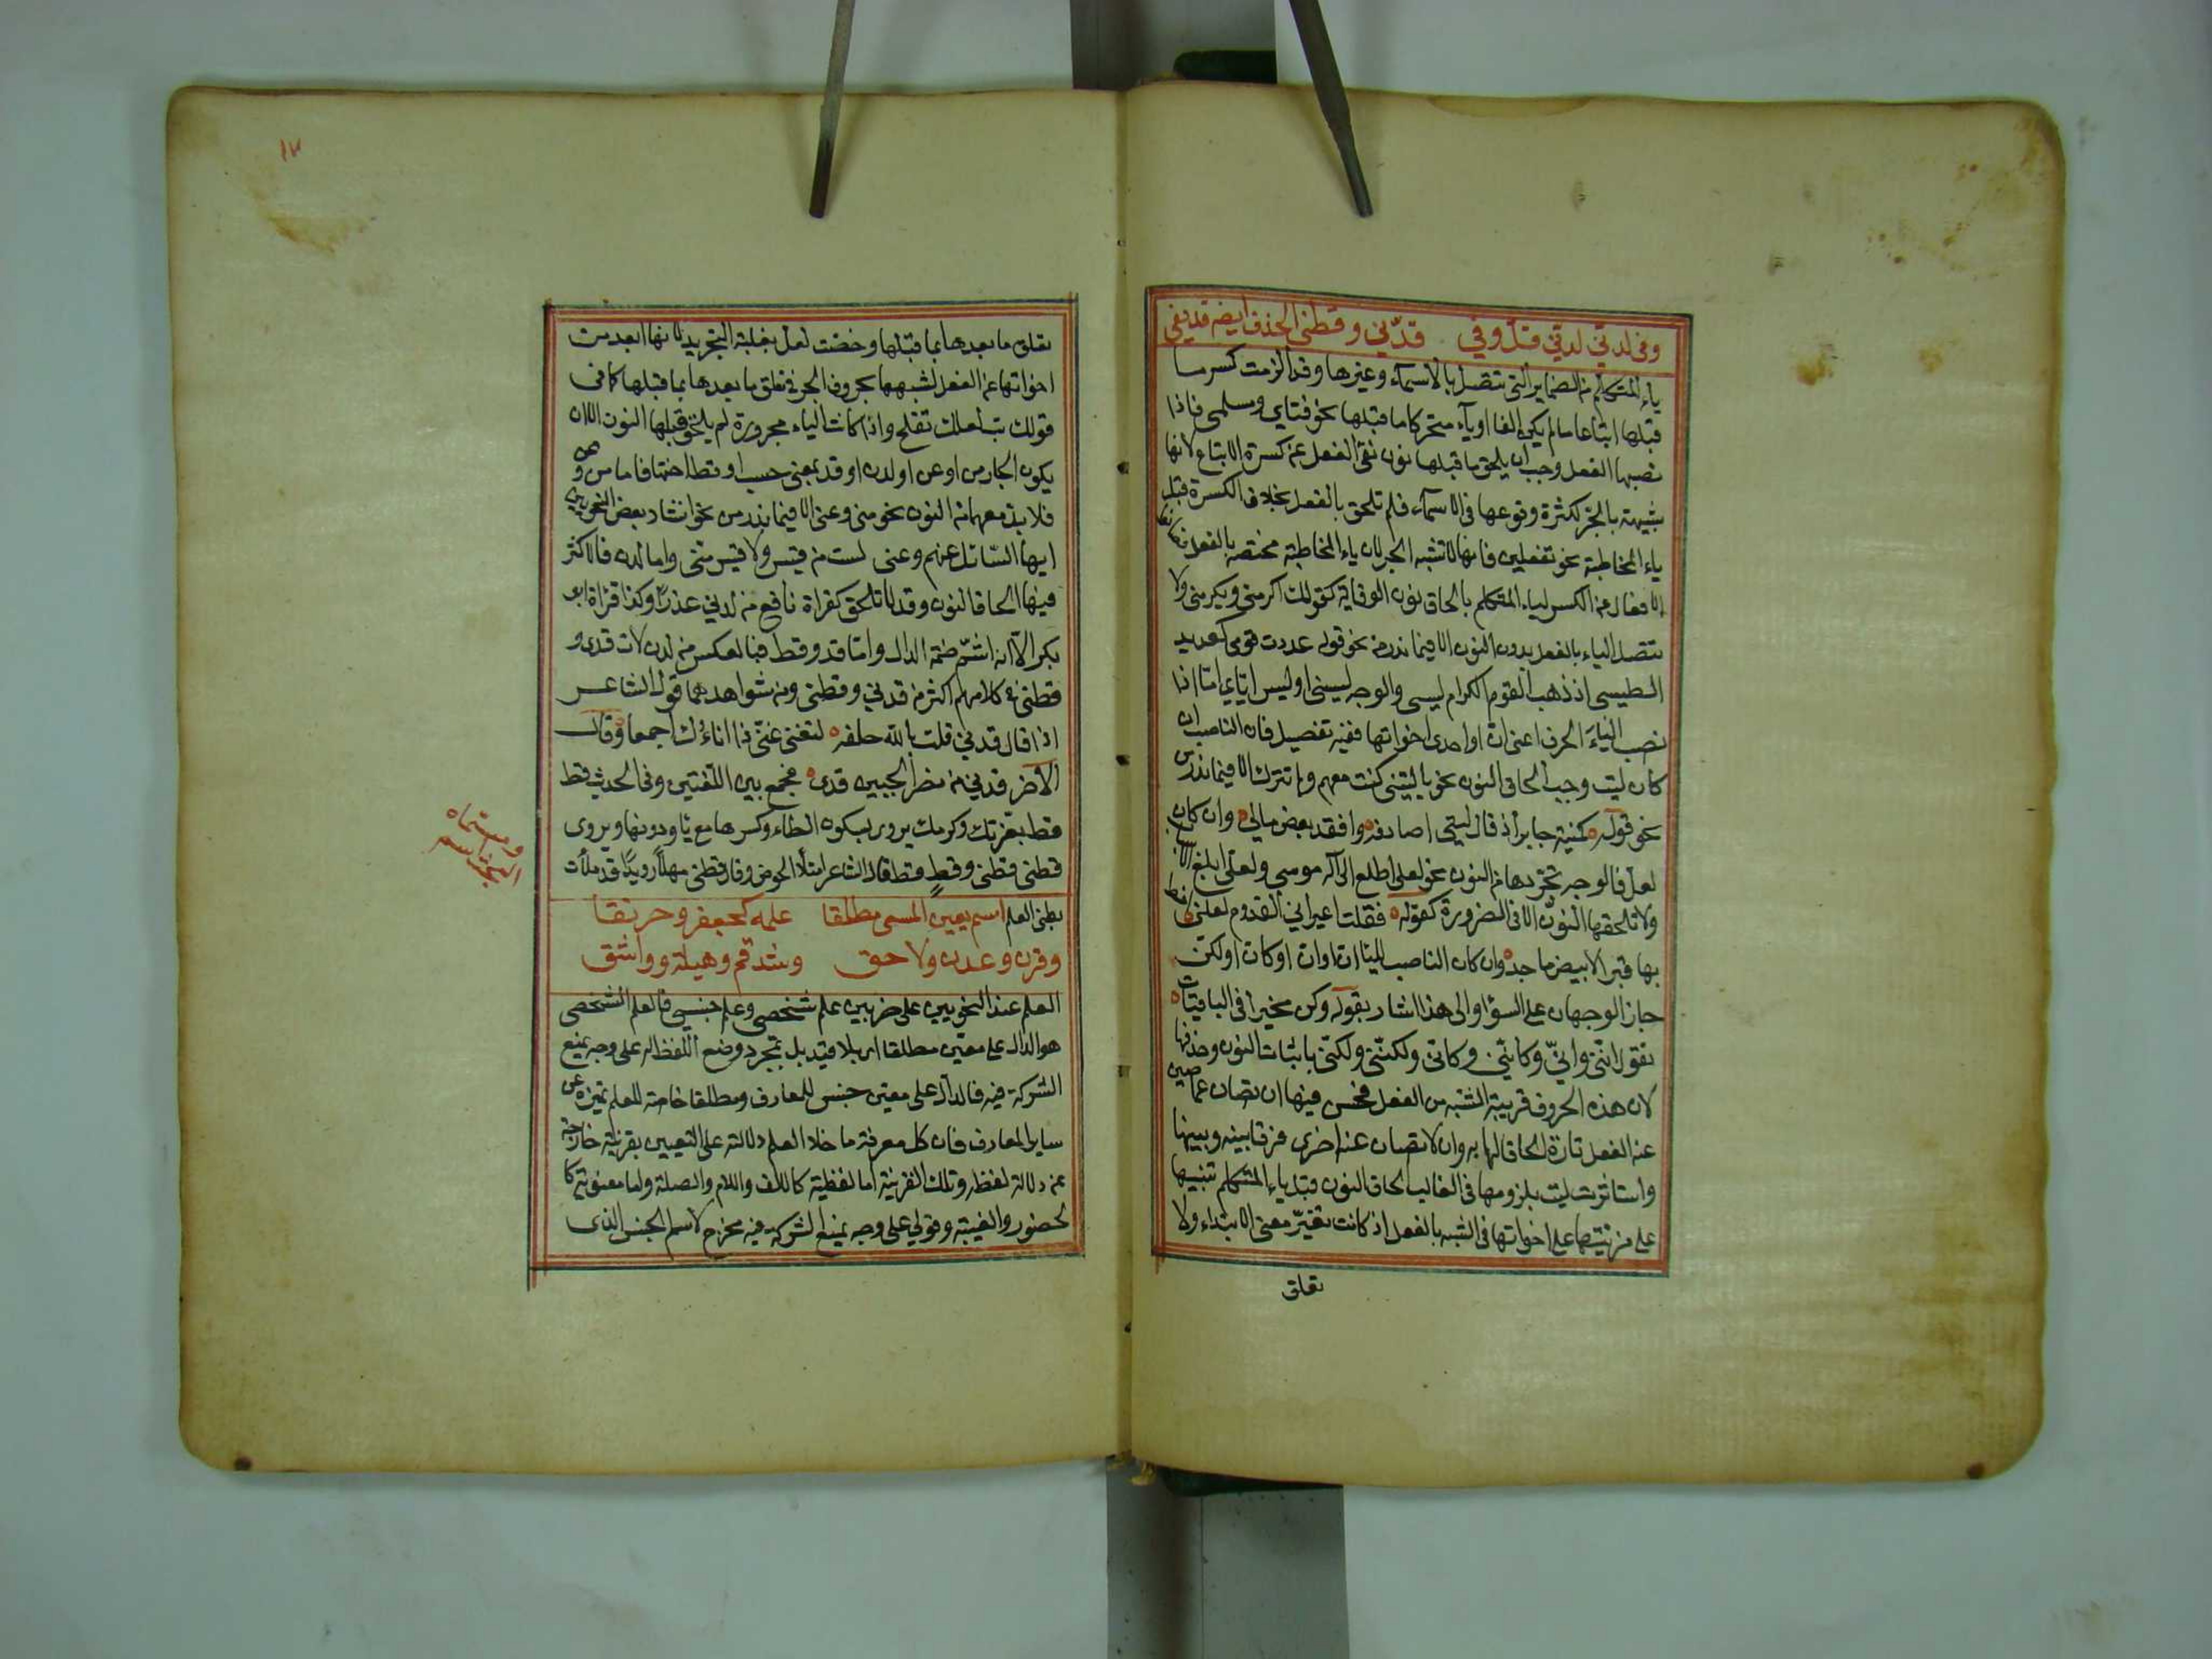 وفى لدنّي لدني قلّ وفي قدني وقطني الحذف ايضا قد يفي
ياء المتكلم من الضماير التي تتصل بالاسماء وغيرها وقد الزمت كسر ما
قبلها اتباعا ما لم يكن الفا او ياء متحركا ما قبلها نحو فتاي ومسلمي فاذا
نصبها الفعل وجب ان يلحق ما قبلها نون تقى الفعل من كسرة الاتباع لانها
شبيهة بالجر لكثرة وقوعها فى الاسماء فلم تلحق بالفعل بخلاف الكسرة قبل
ياء المخاطبة نحو تفعلين فانها لا تشبه الجر لان ياء المخاطبة مختصة بالفعل
الافعال من الكسر لياء المتكلم بالحاق نون الوقاية كقولك اكرمنى ويكرمنى ولا
تتصل الياء بالفعل بدون النون الا فيما ندر من نحو قوله عددت قومى كعديد
الطيسى اذ ذهب القوم الكرام ليسى والوجه ليسنى او ليس اياي اما اذا
نصب الياء الحرف اعنى ان او احدى اخواتها ففيه تفصيل فان الناصب ان
كان ليت وجب الحاق النون نحو يا ليتنى كنت معهم ولم تترك الا فيما ندر من
نحو قوله كمنية جابر اذ قال ليتى اصادفه وافقد بعض مالي وان كان
لعل فالوجه تجردها من النون نحو لعلى اطلع الى اله موسى ولعلى ابلغ
ولا تلحقها النون الا فى الضرورة كقوله فقلت اعيراني القدوم لعلنى اخط
بها قبرا لابيض ماجد وان كان الناصب للياء ان او ان او كان او لكن
جاز الوجهان على السواء والى هذا اشار بقوله وكن مخيرا فى الباقيات
تقول اننى واني وكاننى وكانى ولكننى ولكنى باثبات النون وحذفها
لان هذه الحروف قريبة الشبه من الفعل فحسن فيها ان تصان عما صين
عنه الفعل تارة الحاقا لها به وان لا تصان عنه اخرى فرقا بينه وبينها
واستاثرت ليت بلزومها فى الغالب الحاق النون قبل ياء المتكلم تنبيها
على مزيتها على اخواتها فى الشبه بالفعل اذ كانت تغير معنى الابتداء ولا
تعلق
١٢
تعلق ما بعدها بما قبلها وخصت لعل بغلبة التجريد لانها ابعد من
اخواتها عن الفعل لشبهها بحروف الجر فى تعلق ما بعدها بما قبلها كما فى
قولك تب لعلك تفلح واذا كانت الياء مجرورة لم يلحق قبلها النون الا ان
يكون الجار من او عن او لدن او قد بمعنى حسب او قط اختها فاما من وعن
فلا بد معهما من النون نحو منى وعنى الا فيما ندر من نحو انشاد بعض النحويين
ايها السائل عنهم وعنى لست من قيس ولا قيس منى واما لدن فالاكثر
فيها الحاق النون وقد لا تلحق كقراة نافع من لدني عذرا وكذا قراة ابو
بكر الا انه اشم ضمة الدال واما قد وقط فبالعكس من لدن لان قدى و
قطى فى كلامهم اكثر من قدني وقطنى ومن شواهدهما قول الشاعر
اذا قال قدني قلت بالله حلفة لتغنى عنّى ذا اناءك اجمعا وقال
الاخر قدني من نصر الخبيبين قدى فجمع بين اللغتين وفى الحديث قط
قط بعزتك وكرمك يروى بسكون الطاء وكسرها مع ياء ودونها ويروى
قطنى قطنى وقطٍ قط قال الشاعر امتلا الحوض وقال قطنى مهلا رويدا قد ملات
بطنى العلم اسم يعين المسمى مطلقا علمه كجعفر وخرنقا
وقرن وعدن ولاحق وشذقم وهيلة وواشق
العلم عند النحويين على ضربين علم شخصي وعلم جنسي فالعلم الشخصى
هو الدال على معين مطلقا اى بلا قيد بل بمجرد وضع اللفظ له على وجه يمنع
الشركة فيه فالدال على معين جنس للمعارف ومطلقا خاصة للعلم تميزه عن
ساير المعارف فان كل معرفة ما خلا العلم دلالته على التعيين بقرينة خارجة
عن دلالة لفظه وتلك القرينة اما لفظية كالالف واللام والصلة واما معنوية كا
لحضور والغيبة وقولي على وجه يمنع الشركة فيه مخرج لاسم الجنس الذى